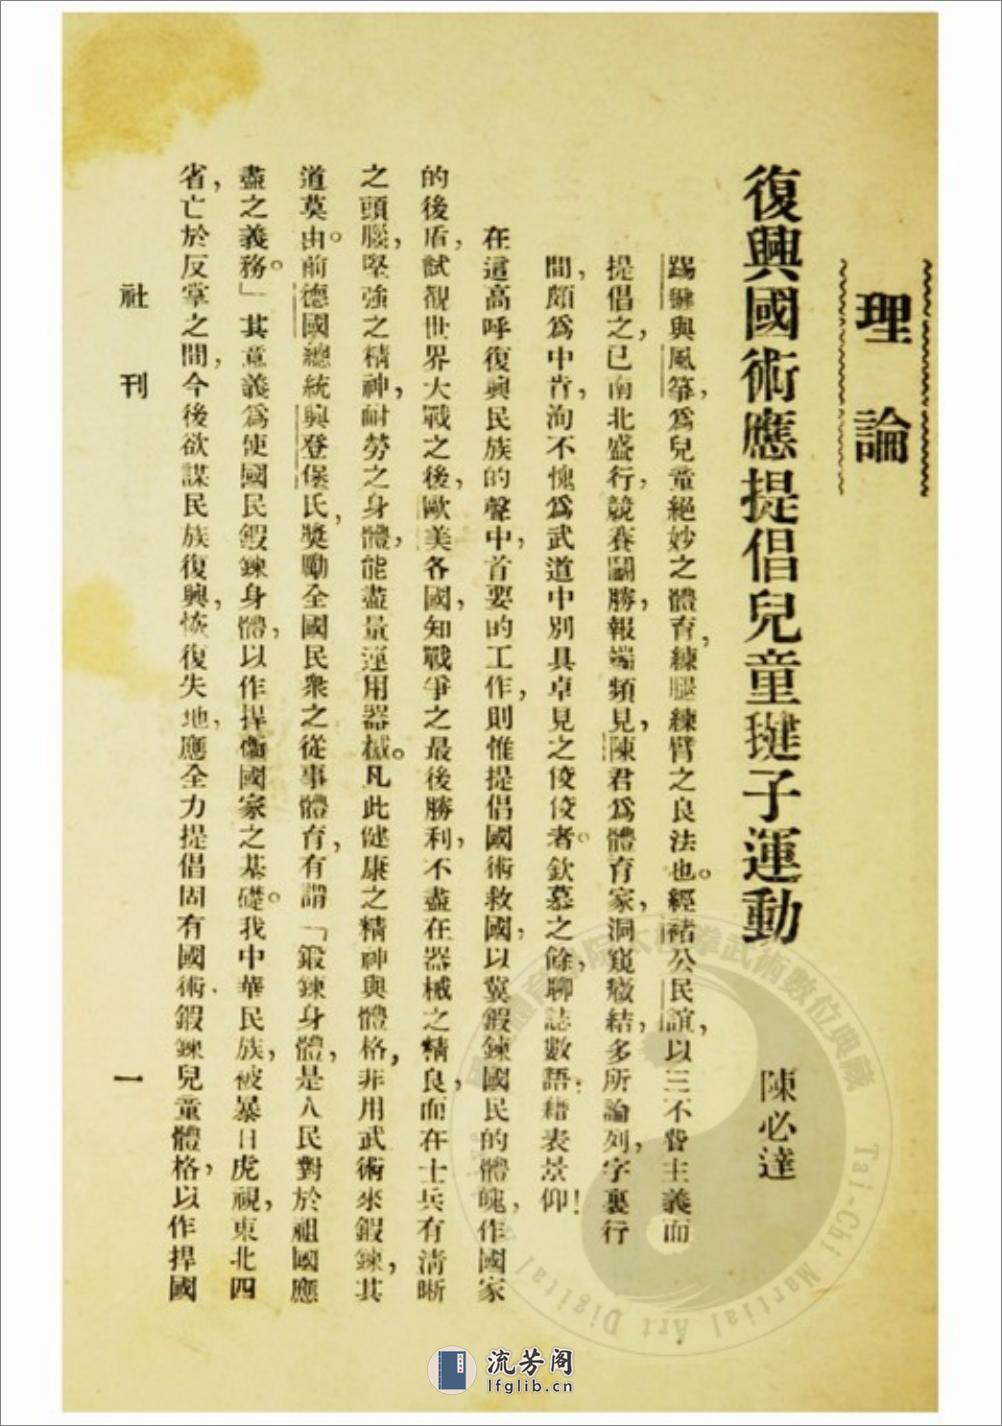 理論
復興國術應提倡兒童毽子運動
陳必達
踢毽與風箏,為兒童絕妙之體育,練腿練臂之良法也。經褚公民誼,以三不費主義而
提倡之,已南北盛行,競賽鬭勝,報端頻見,陳君為體育家,洞窺癥結,多所論列,字裏行
間,頗為中肯,洵不愧為武道中別具卓見之佼佼者。欽慕之餘,聊誌數語,藉表景仰!
在這高呼復興民族的聲中,首要的工作,則惟提倡國術救國,以冀鍛鍊國民的體魄,作國家
的後盾,試觀世界大戰之後,歐美各國,知戰爭之最後勝利,不盡在器械之精良,而在士兵有清晰
之頭腦,堅強之精神,耐勞之身體,能盡量運用器械。凡此健康之精神與體格,非用武術來鍛鍊,其
道莫由。前德國總統興登堡氏,獎勵全國民衆之從事體育,有謂「鍛鍊身體,是人民對於祖國應
盡之義務。」其意義為使國民鍛鍊身體,以作捍衞國家之基礎。我中華民族,被暴日虎視,東北四
省,亡於反掌之間,今後欲謀民族復興,恢復失地,應全力提倡固有國術、鍛鍊兒童體格,以作捍國
社刊
一
Tai-Chi Martial Art Digital
流芳阁
lfglib.cn